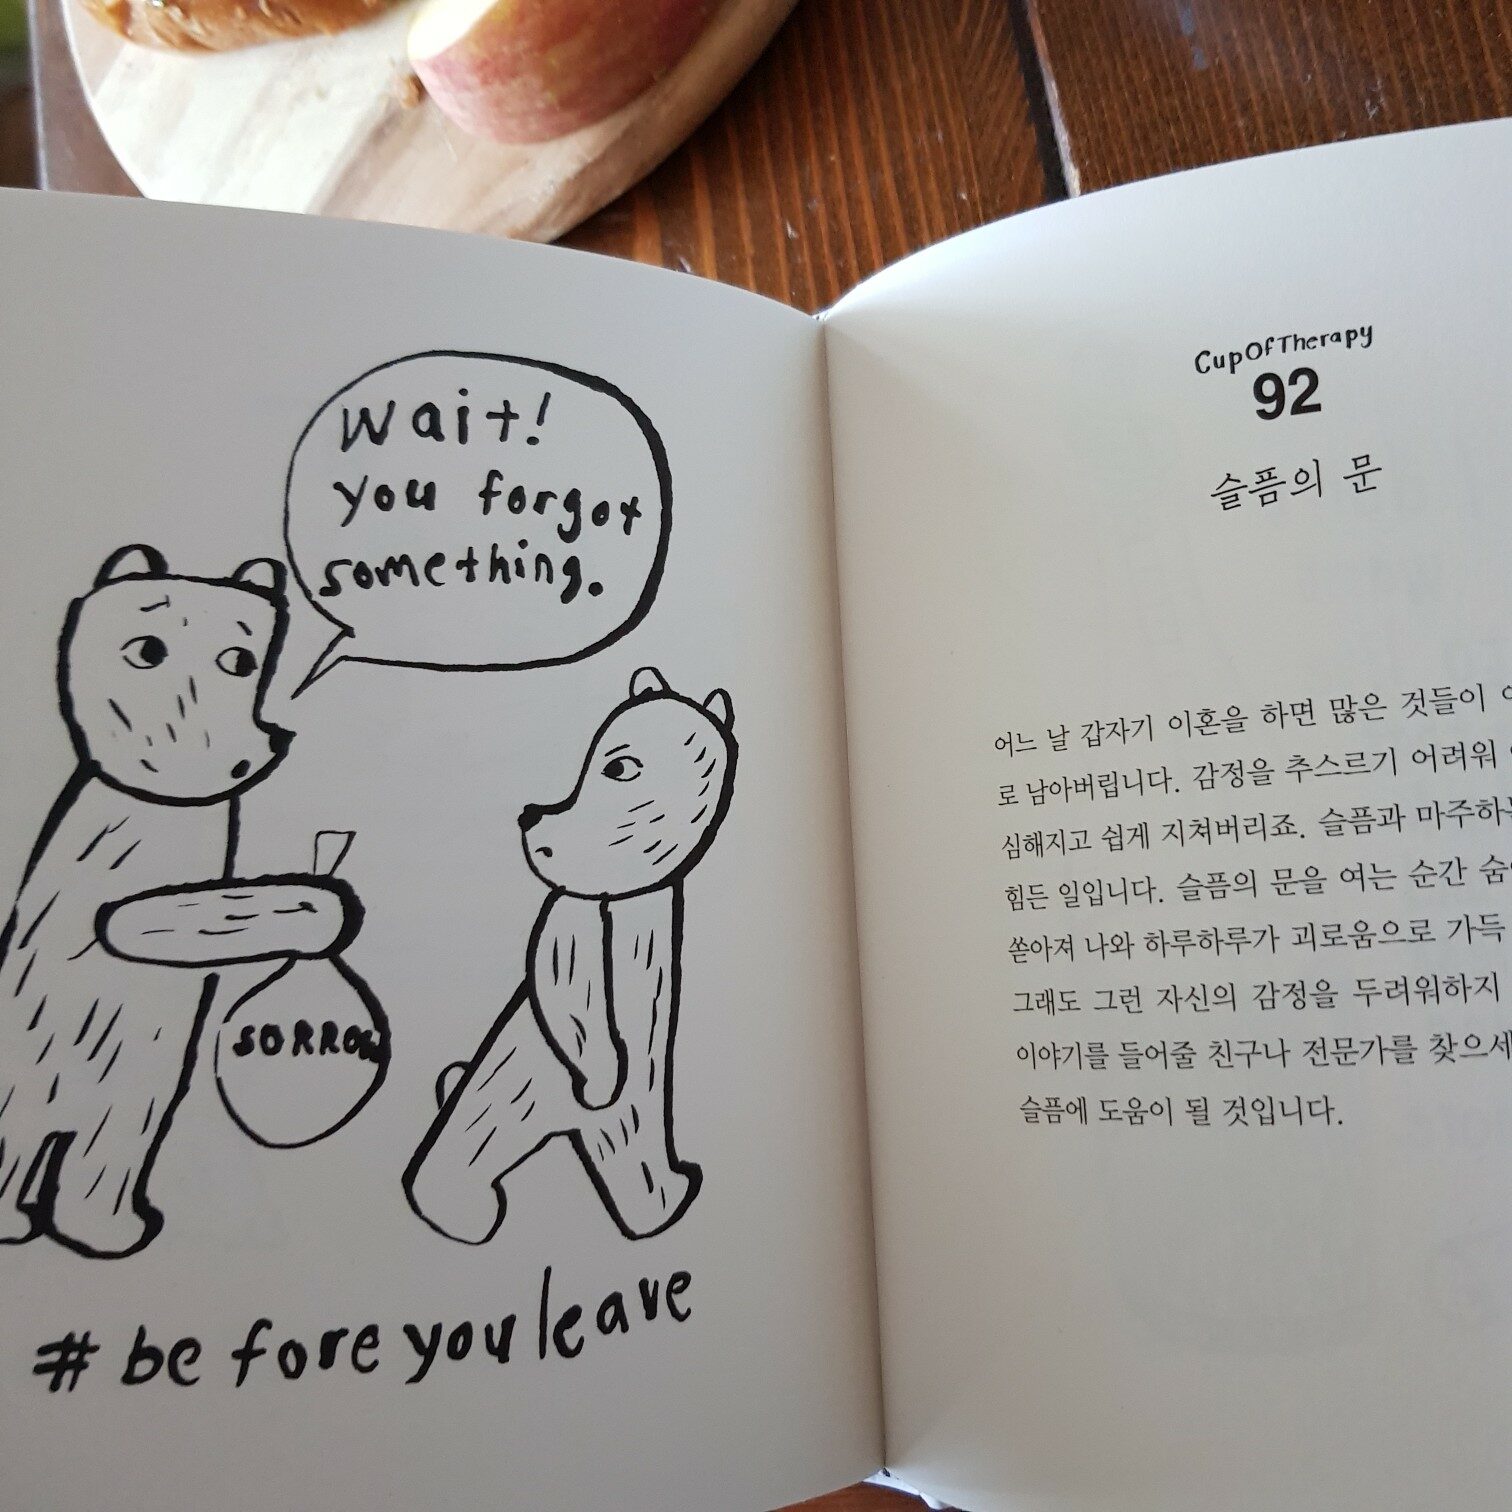 Wait!
you forgot
something.
SORROW
# be fore you leave
CupOfTherapy
92
슬픔의 문
어느 날 갑자기 이혼을 하면 많은 것들이
로 남아버립니다. 감정을 추스르기 어려워
심해지고 쉽게 지쳐버리죠. 슬픔과
힘든 일입니다. 슬픔의 문을 여는 순간
쏟아져 나와 하루하루가 괴로움으로 가득
그래도 그런 자신의 감정을 두려워하지
이야기를 들어줄 친구나 전문가를
슬픔에 도움이 될 것입니다.